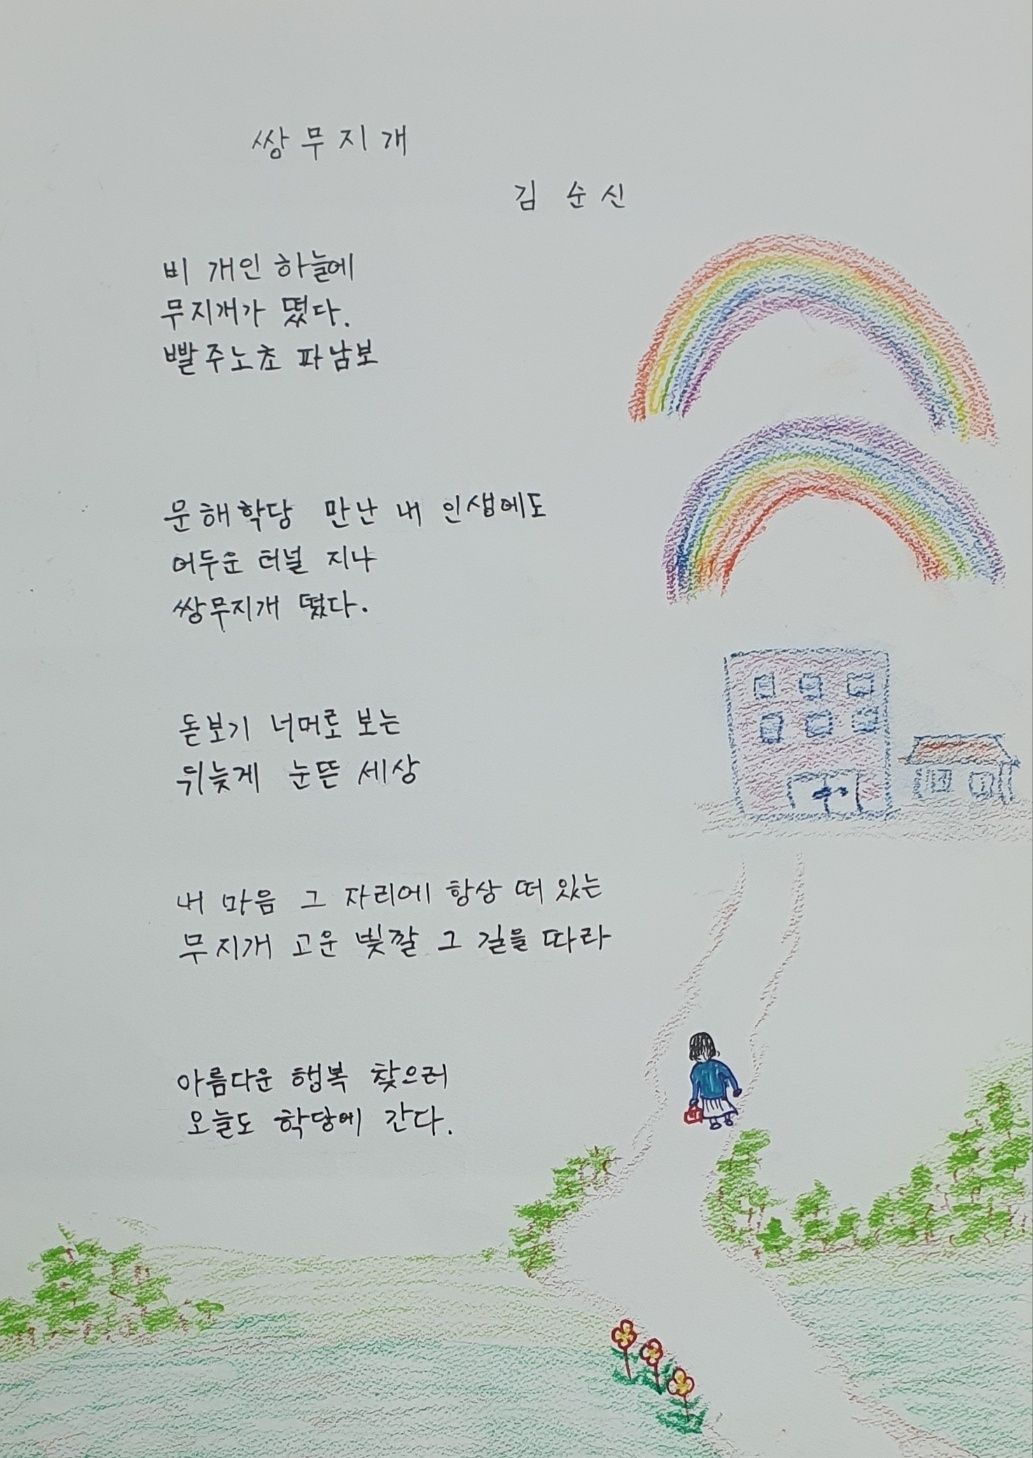 쌍무지개
김순신
비 개인 하늘에
무지개가 떴다.
빨주노초 파남보
문해학당 만난 내 인생에도
어두운 터널 지나
쌍무지개 떴다.
돋보기 너머로 보는
뒤늦게 눈뜬 세상
내 마음 그 자리에 항상 떠 있는
무지개 고운 빛깔 그 길을 따라
아름다운 행복 찾으러
오늘도 학당에 간다.